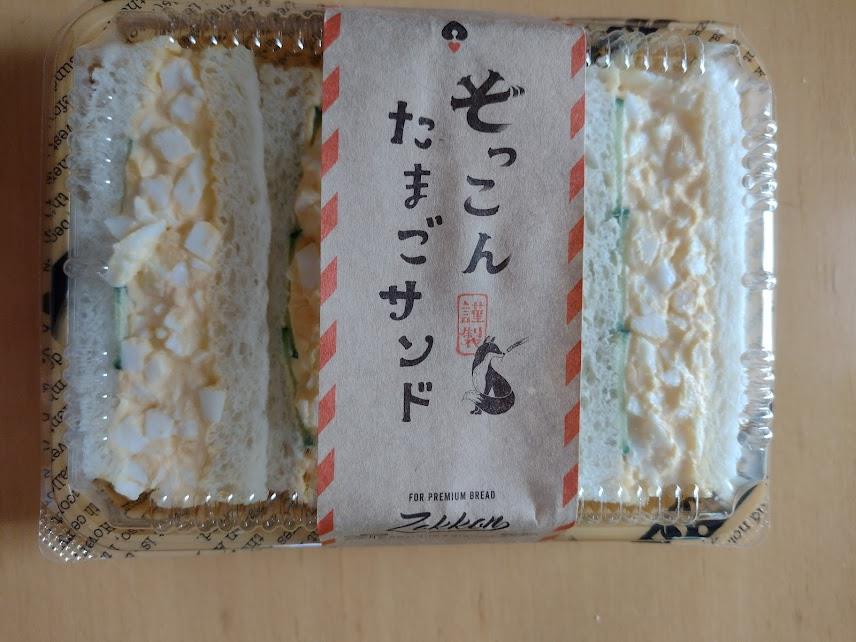 ぞっこん
たまごサンド
謹製
FOR PREMIUM BREAD
Zokkon